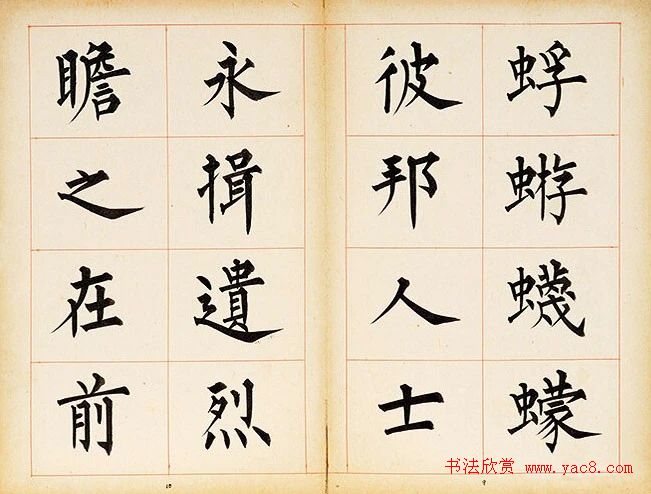 蜉蝣蠛蠓
彼邦人士
永揖遺烈
瞻之在前
10
9
书法欣赏 www.yac8.com